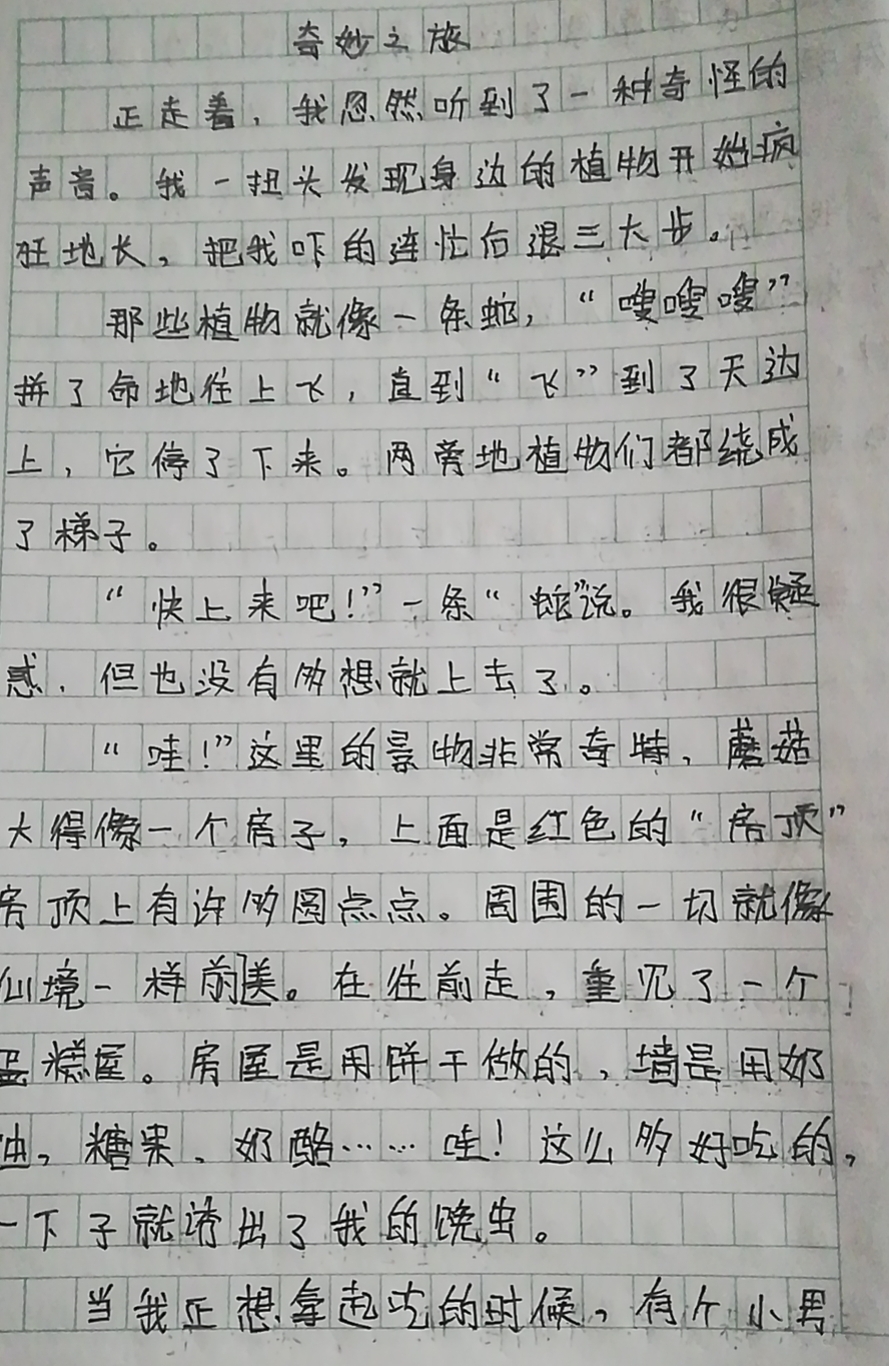 奇妙之旅
正走着，我忽然听到了一种奇怪的
声音。我一扭头发现身边的植物开始疯
狂地长，把我吓的连忙后退三大步。
那些植物就像一条蛇，“嗖嗖嗖”
拼了命地往上飞，直到“飞”到了天边
上，它停了下来。两旁地植物们都绕成
了梯子。
“快上来吧！”一条“蛇”说。我很疑
惑，但也没有多想就上去了。
“哇！”这里的景物非常奇特，蘑菇
大得像一个房子，上面是红色的“房顶”
房顶上有许多圆点点。周围的一切就像
仙境一样前美。在往前走，重见了一个
蛋糕屋。房屋是用饼干做的，墙是用奶
油，糖果、奶酪……哇！这么多好吃的，
一下子就请出了我的馋虫。
当我正想拿起吃的时候，有个小男